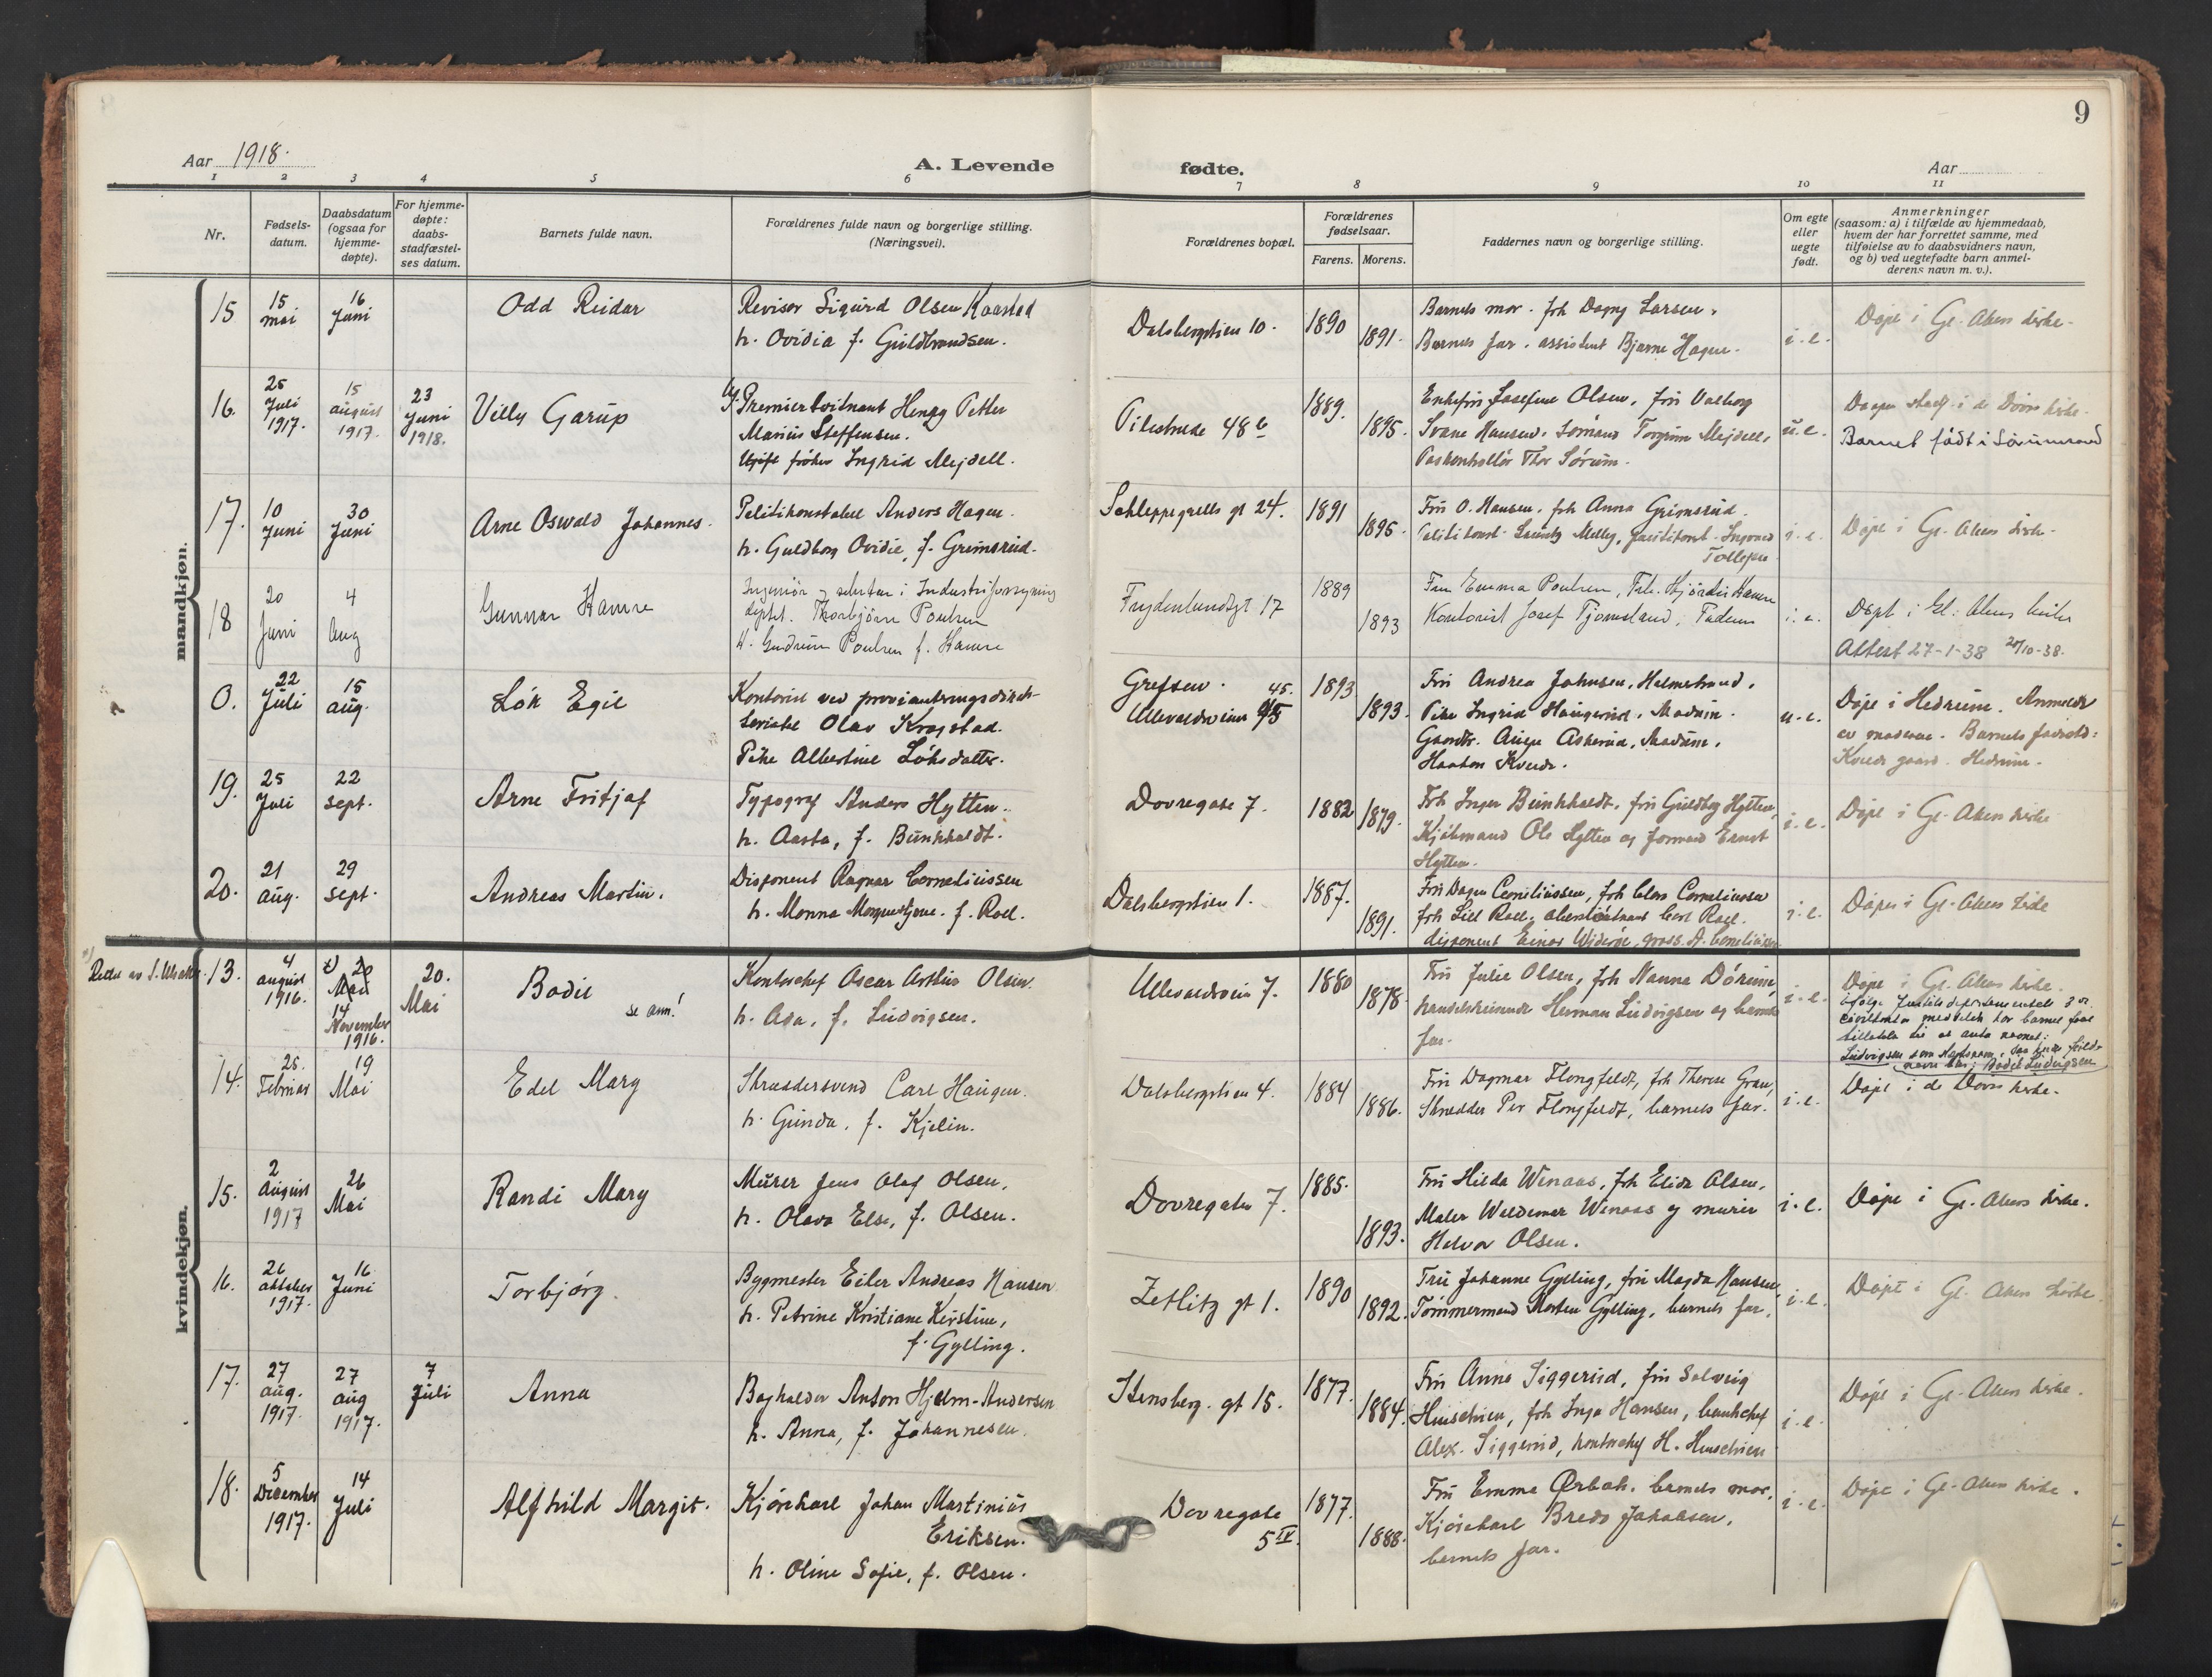 9
Aar 1918.
A. Levende
fødte.
Aar
1 2 3 4 5 6 7 8 9 10 11
Nr.
Fødsels-
datum.
Daabsdatum
(ogsaa for
hjemme-
døpte).
For hjemme-
døpte:
daabs-
stadfæstel-
ses datum.
Barnets fulde navn.
Forældrenes fulde navn og borgerlige stilling.
(Næringsvei).
Forældrenes bopæl.
Forældrenes
fødselsaar.
Farens. Morens.
Faddernes navn og borgerlige stilling.
Om egte
eller
uegte
født.
Anmerkninger
(saasom: a) i tilfælde av hjemmedaab,
hvem der har forrettet samme, med
tilføielse av to daabsvidners navn,
og b) ved uegtefødte barn anmel-
derens navn m. v.).
mandkjøn.
15
15
mai
16
Juni
Odd Reidar
Revisor Sigurd Olsen Kaastad
h. Ovidia f. Guldbrandsen.
Dalsbergstien 10.
1890
1891.
Barnets mor. frk Dagny Larsen,
Barnets far. assistent Bjarne Hagen.
i. e.
Døpt i Gl. Akers kirke.
16.
25
Juli
1917.
15
august
1917.
23
Juni
1918.
Villy Garup
Premierløitnant Henry Petter
Marius Steffensen.
Ugift frøken Ingrid Mejdell.
Pilestræde 48 b
1889.
1895.
Enkefru Josefine Olsen, fru Valborg
Svane Hansen, Sømand Torgrim Mejdell,
Thor Sørum.
u. e.
Daapen stadf. i de Døves kirke.
Barnet født i Sørumsand
17.
10
Juni
30
Juni
Arne Oswald Johannes.
Politikonstabel Anders Hagen.
h. Guldborg Ovidie, f. Grimsrud.
Schleppegrells gt 24.
1891
1895.
Fru O. Hansen, frk Anna Grimsrud.
Politikonst. Melby, politikonst.
i. e.
Døpt i Gl. Akers kirke.
18
20
Juni
4
Aug
Gunnar Hamre
Ingeniør og sekretær i Industriforsyning
deptet. Thorbjørn Poulsen
H. Gudrun Poulsen f. Hamre
Frydenlundsgt 17
1889
1893
Fru Emma Poulsen, Frk. Hjørdis Hamre
Kontorist Josef Tjomsland, Faderen
i. e.
Døpt i Gl. Akers kirke
Attest 27-1-38 20/10-38.
0.
22
Juli
15
aug.
Løk Egil
Kontorist ved provianteringsdirek-
toriatet Olav Krogstad.
Pike Albertine Løksdatter.
Grefsen.
Ullevaldsveien 45.
1893
1893.
Fru Andrea Johnsen, Holmestrand,
Pike Ingrid Haugerud, Modum.
Gaardbr. Aage Askerud, Modum,
Haakon Kverde.
u. e.
Døpt i Hedrum. Anmeldt
av moderen. Barnets fødested:
Kverde gaard. Hedrum.
19.
25
Juli
22
sept.
Arne Fritjof
Typograf Anders Hytten.
h. Aasta, f. Bunkholdt.
Dovregate 7.
1882
1879.
Frk Inger Bunkholdt, fru Guldborg Hytten,
Kjøbmand Ole Hytten og formand Ernst
Hytten.
i. e.
Døpt i Gl. Akers kirke
20.
21
aug.
29
sept.
Andreas Martin.
Disponent Ragnar Corneliussen
h. Monna Margrethe. f. Roll.
Dalsbergstien 1.
1887.
1891.
Fru Dagny Corneliussen, frk Clara Corneliussen
frk Lill Roll, oberstløitnant Carl Roll.
disponent Einar Widerøe, gross. A. Corneliussen
i. e.
Døpt i Gl. Akers kirke
kvindekjøn.
13.
4
august
1916.
20
Mai
14
November
1916.
20.
Mai
Bodil
se anm!
Kontorchef Oscar Arthur Olsen.
h. Aga, f. Ludvigsen.
Ullevaldsvein 7.
1880
1878.
Fru Julie Olsen, frk Nanna Dørum,
handelsreisende Herman Ludvigsen og barnets
far.
i. e.
Døpt i Gl. Akers kirke.
ifølge Justitsdepartementets 3die
civilkontor meddelelse har barnet faat
tilladelse til at anta navnet:
Ludvigsen som slegtsnavn, saa hendes fulde
navn blir: Bodil Ludvigsen
14.
25.
Februar
19
Mai
Edel Mary
Skræddersvend Carl Haugen.
h. Gunda, f. Kjelin.
Dalsbergstien 4.
1884
1886.
Fru Dagmar Flongfeldt, frk Therese Gran,
Skrædder Per Flongfeldt, barnets far.
i. e.
Døpt i de Døves kirke.
15.
2
August
1917
26
Mai
Randi Mary
Murer Jens Olaf Olsen,
h. Olava Else, f. Olsen.
Dovregaten 7.
1885.
1893.
Fru Hilda Winaas, frk Elida Olsen,
Maler Waldemar Winaas og murer
Halvor Olsen.
i. e.
Døpt i Gl. Akers kirke.
16.
26
oktober
1917.
16
Juni
Torbjørg.
Bygmester Eiler Andreas Hansen
h. Petrine Kristiane Kirstine,
f. Gylling.
Zetlitz gt 1.
1890
1892.
Fru Johanne Gylling, fru Magda Hansen,
Tømmermand Morten Gylling, barnets far.
i. e.
Døpt i Gl. Akers kirke
17.
27
aug.
1917.
27
aug
1917.
7
Juli
Anna
Bogholder Anton Hjelm-Andersen
h. Anna, f. Johannesen.
Stensberg. gt 15.
1877.
1884.
Fru Anna Siggerud, fru Solveig
Hinschien, frk Inga Hansen, bankchef
Alex. Siggerud, kontorchef H. Hinschien
i. e.
Døpt i Gl. Akers kirke.
18.
5
December
1917.
14
Juli
Alfhild Margit.
Kjørekarl Johan Martinius
Eriksen.
h. Oline Sofie, f. Olsen.
Dovregate
5 IV.
1877.
1888.
Fru Emma Ørbak, barnets mor,
Kjørekarl Bredo Jakobsen,
barnets far.
i. e.
Døpt i Gl. Akers kirke.